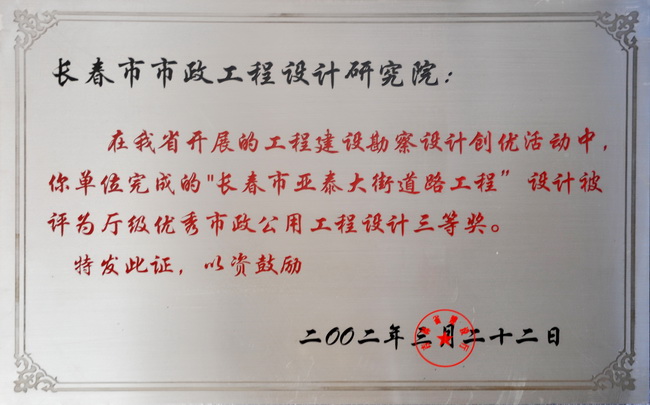 长春市市政工程设计研究院：
在我省开展的工程建设勘察设计创优活动中，
你单位完成的"长春市亚泰大街道路工程"设计被
评为厅级优秀市政公用工程设计三等奖。
特发此证，以资鼓励
二〇〇二年三月二十二日